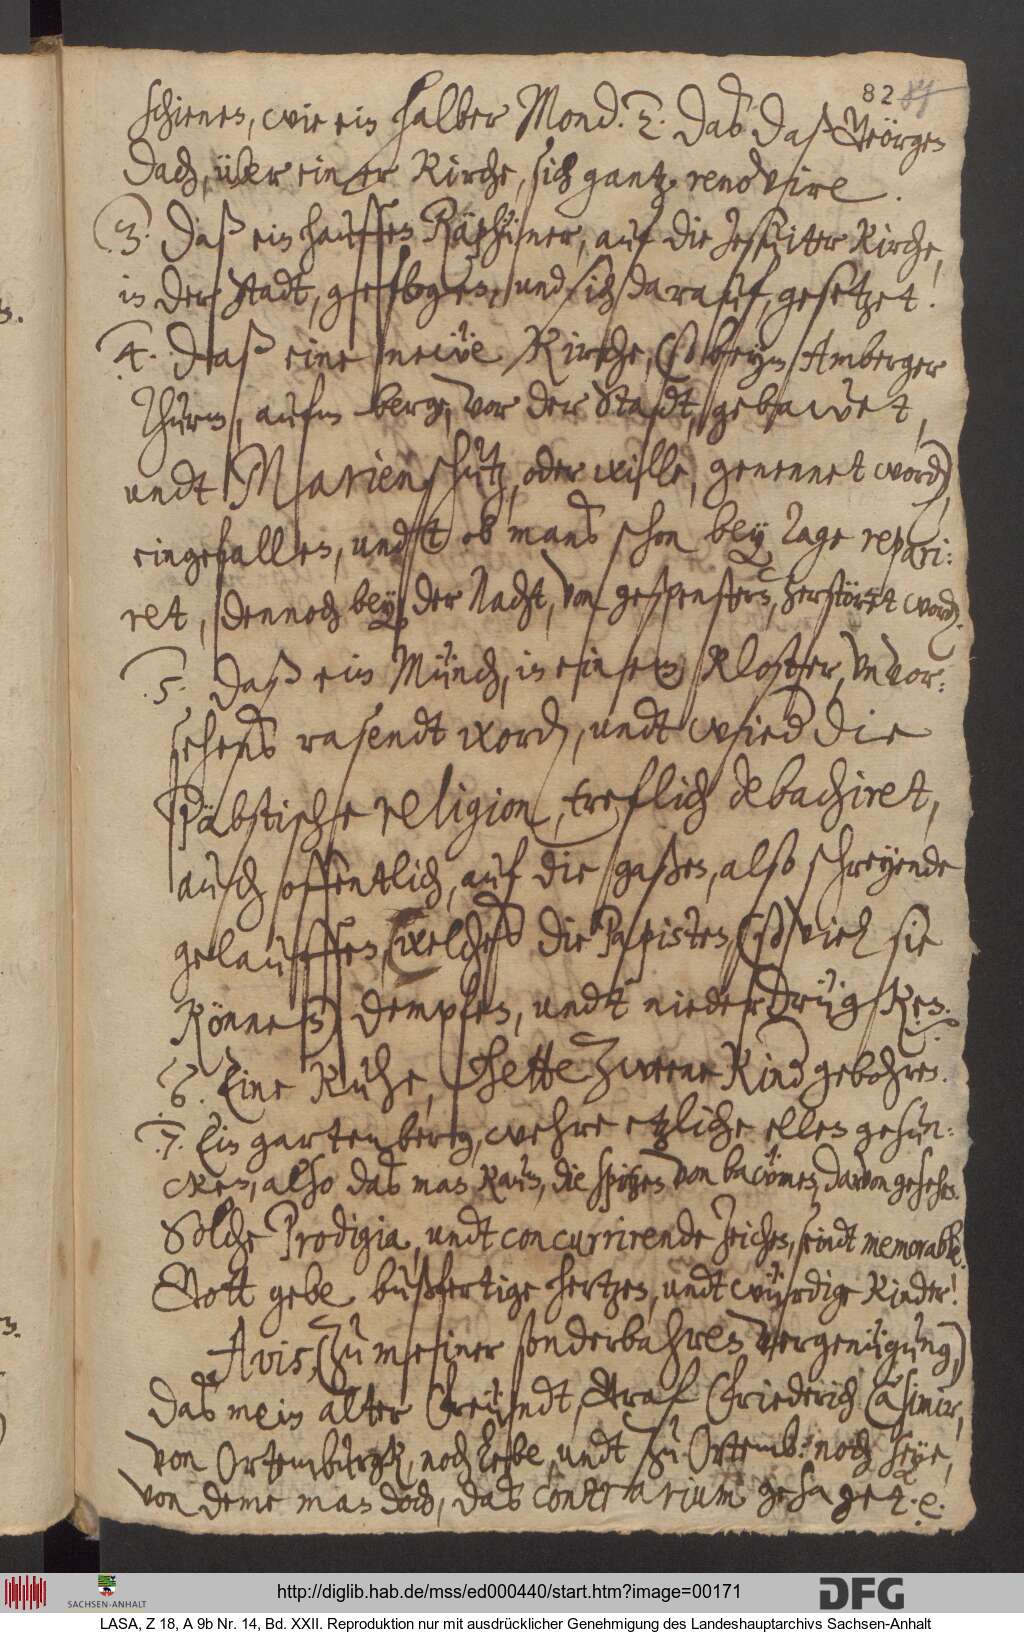 82 87
schienen, wie ein halber Mond. 2. Das daß Geörgen
Dach, über einer Kirche, sich gantz renovire.
3. Daß ein hauffen Räphüner, auf die Jesuiter Kirche,
in der Stadt, geflogen, und sich darauf, gesetzet!
4. Daß eine newe Kirche, (so beym Amberger
Thurm, aufm berge, vor der Stadt, gebawet,
undt Marienschütz, oder hülffe, genennet word)
eingefallen, undt ob mans schon bey Tage repari:
ret, dennoch bey der Nacht, von gespenstern, zerstöret word.
5. Daß ein Münch, in einem Kloster, unvor:
sehens rasendt word, undt wied die
Päbstische religion, treflich debachiret,
auch offentlich, auf die gaßen, also schreyende
gelauffen, (welches die Papisten, (so viel sie
können) dempfen, undt niederdrügken.
6. Eine Kuhe, hette zweene Kind gebohren.
7. Ein gartenberg, wehre etzliche ellen gesun:
cken, also das man kaum, die spitzen von bäwmen, darvon gesehen.
Solche Prodigia, undt concurrirende Zeichen, seindt memorable.
Gott gebe bußfertige hertzen, undt würdige Kinder!
Avis, (zu meiner sonderbahren vergenügung,)
das mein alter Freundt, Graf Friederich Casimir,
von Ortemburgk, noch lebe, undt zu Ortemb: noch seye,
von deme man doch, das contrarium gesaget. e.
http://diglib.hab.de/mss/ed000440/start.htm?image=00171
SACHSEN-ANHALT
DFG
LASA, Z 18, A 9b Nr. 14, Bd. XXII. Reproduktion nur mit ausdrücklicher Genehmigung des Landeshauptarchivs Sachsen-Anhalt